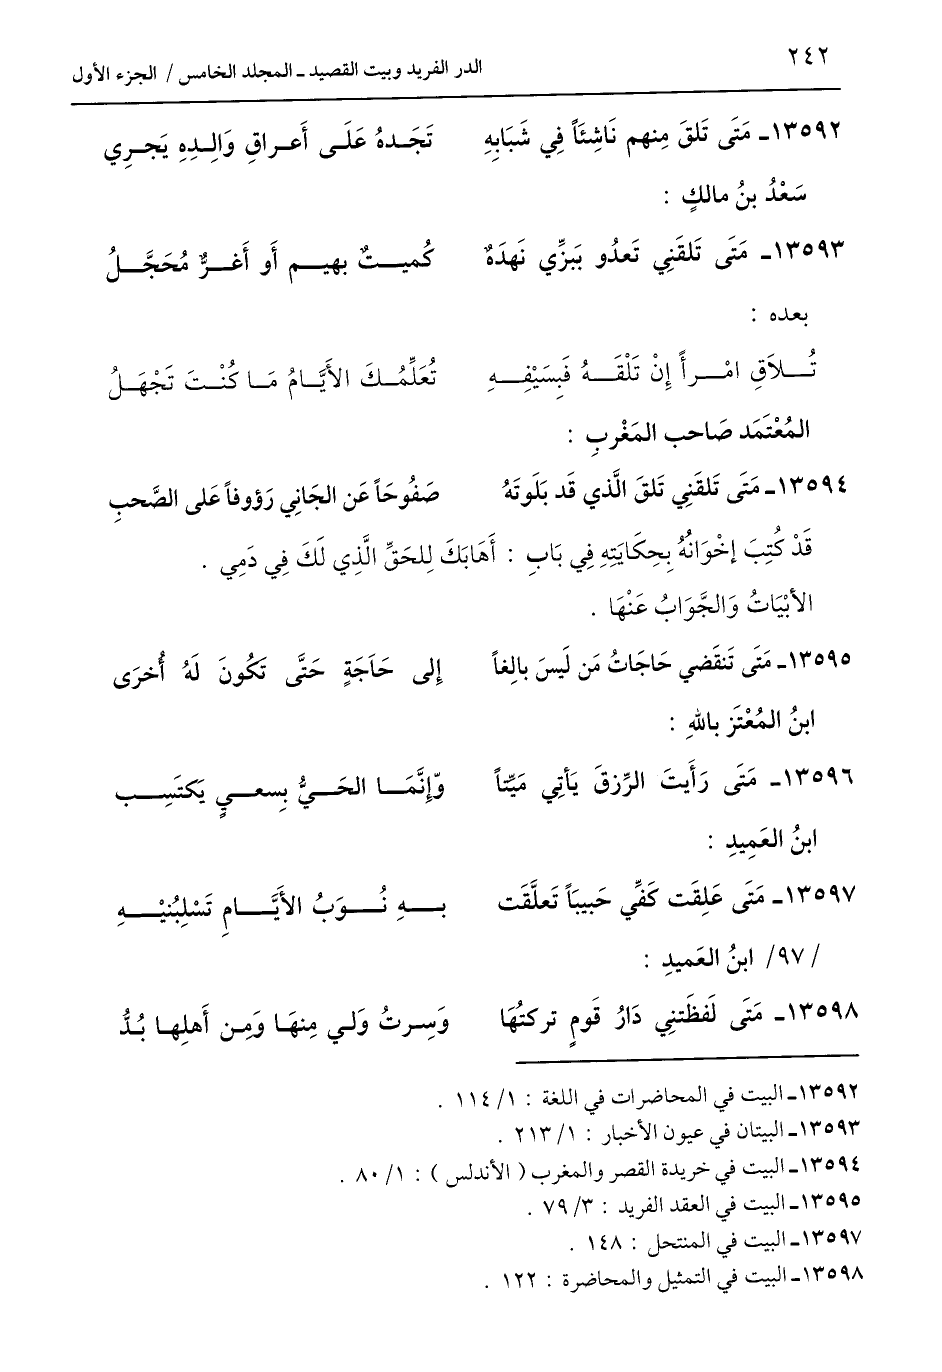 ٢٤٢
الدر الفريد وبيت القصيد ـ المجلد الخامس / الجزء الأول
١٣٥٩٢ـ مَتَى تَلقَ مِنهم نَاشِئَاً فِي شَبَابِهِ تَجَدهُ عَلَى أَعراقِ وَالِدِهِ يَجرِي
سَعْدُ بنُ مالكٍ :
١٣٥٩٣ـ مَتَى تَلقَنِي تَعدُو بَبزِّي نَهدَةٌ كُميتٌ بهيم أو أَغرٌّ مُحَجَّلُ
بعده :
تُلاَقِ امْرأً إنْ تَلْقَهُ فَبِسَيْفِهِ تُعَلِّمُكَ الأَيَّامُ مَا كُنْتَ تَجْهَلُ
المُعْتَمَد صَاحب المَغْربِ :
١٣٥٩٤ـ مَتَى تَلقَنِي تَلقَ الَّذي قَد بَلَوتَهُ صَفُوحَاً عَن الجَانِي رَؤوفاً عَلى الصَّحبِ
قَدْ كُتِبَ إخْوَانُهُ بِحِكَايَتِهِ فِي بَابِ : أَهَابَكَ لِلحَقِّ الَّذِي لَكَ فِي دَمِي .
الأبْيَاتُ وَالجَّوَابُ عَنْهَا .
١٣٥٩٥ـ مَتَى تَنقَضي حَاجَاتُ مَن لَيسَ بالِغاً إلى حَاَجَةٍ حَتَّى تَكُونَ لَهُ أُخرَى
ابنُ المُعْتَز باللهِ :
١٣٥٩٦ـ مَتَى رَأَيتَ الرِّزقَ يَأتِي مَيِّتاً وّإنَّمَا الحَيُّ بِسعيٍ يَكتَسِب
ابنُ العَمِيدِ :
١٣٥٩٧ـ مَتَى عَلِقَت كَفِّي حَبِيبَاً تَعلَّقَت بهِ نُوَبُ الأَيَّامِ تَسْلِبُنيْهِ
/٩٧/ ابنُ العَميدِ :
١٣٥٩٨ـ مَتَى لَفظَتنِي دَارُ قَومٍ تركتُهَا وَسِرتُ وَلي مِنهَا وَمِن أَهلِها بُدُّ
١٣٥٩٢ـ البيت في المحاضرات في اللغة : ١/ ١١٤ .
١٣٥٩٣ـ البيتان في عيون الأخبار : ١/ ٢١٣ .
١٣٥٩٤ـ البيت في خريدة القصر والمغرب ( الأندلس ) : ١/ ٨٠ .
١٣٥٩٥ـ البيت في العقد الفريد : ٣/ ٧٩ .
١٣٥٩٧ـ البيت في المنتحل : ١٤٨ .
١٣٥٩٨ـ البيت في التمثيل والمحاضرة : ١٢٢ .